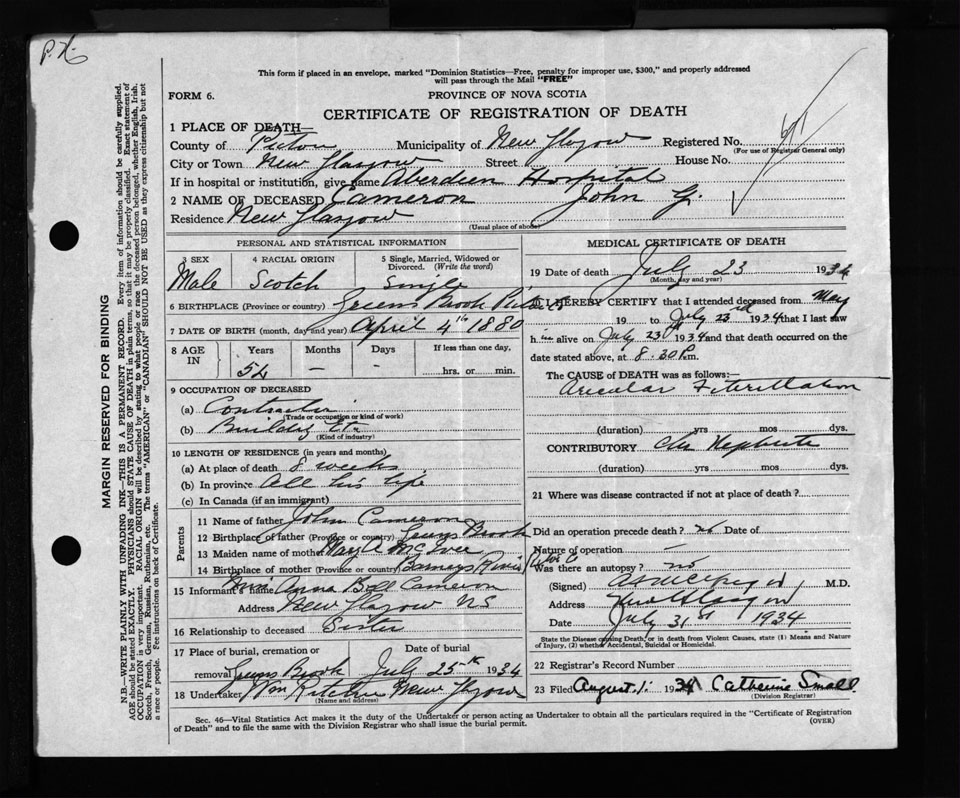 This form if placed in an envelope, marked "Dominion Statistics—Free, penalty for improper use, $300," and properly addressed
will pass through the Mail "FREE"
FORM 6.
PROVINCE OF NOVA SCOTIA
CERTIFICATE OF REGISTRATION OF DEATH
1 PLACE OF DEATH—
County of Pictou Municipality of New Glasgow Registered No.
(For use of Registrar General only)
City or Town New Glasgow Street House No.
If in hospital or institution, give name Aberdeen Hospital
2 NAME OF DECEASED Cameron John G.
Residence New Glasgow
(Usual place of abode)
PERSONAL AND STATISTICAL INFORMATION
3 SEX
Male
4 RACIAL ORIGIN
Scotch
5 Single, Married, Widowed or
Divorced. (Write the word)
Single
6 BIRTHPLACE (Province or country) Greens Brook Pictou
7 DATE OF BIRTH (month, day and year) April 4th 1880
8 AGE IN
Years Months Days If less than one day,
54 — — hrs. or min.
9 OCCUPATION OF DECEASED
(a) Contractor
(Trade or occupation or kind of work)
(b) Building Etc
(Kind of industry)
10 LENGTH OF RESIDENCE (in years and months)
(a) At place of death 8 weeks
(b) In province All his life
(c) In Canada (if an immigrant)
Parents
11 Name of father John Cameron
12 Birthplace of father (Province or country) Greens Brook
13 Maiden name of mother Mary A
14 Birthplace of mother (Province or country) Barneys River
15 Informant's name Anna Bell Cameron
Address New Glasgow NS
16 Relationship to deceased Sister
17 Place of burial, cremation or removal Date of burial
Greens Brook July 25th 1934
18 Undertaker New Glasgow
(Name and address)
MEDICAL CERTIFICATE OF DEATH
19 Date of death July 23 1934
(Month, day and year)
I HEREBY CERTIFY that I attended deceased from May
19 to July 23rd 1934 that I last saw
him alive on July 23rd 1934 and that death occurred on the
date stated above, at 8.30 P.m.
The CAUSE of DEATH was as follows:—
Auricular Fibrillation
(duration) yrs mos dys.
CONTRIBUTORY Chr Nephritis
(duration) yrs mos dys.
21 Where was disease contracted if not at place of death?
Did an operation precede death? no Date of
Nature of operation
Was there an autopsy? no
(Signed) M.D.
Address New Glasgow
Date July 31st 1934
State the Disease causing Death, or in death from Violent Causes, state (1) Means and Nature
of Injury, (2) whether Accidental, Suicidal or Homicidal.
22 Registrar's Record Number
23 Filed August 1. 1934 Catherine Small
(Division Registrar)
Sec. 46—Vital Statistics Act makes it the duty of the Undertaker or person acting as Undertaker to obtain all the particulars required in the "Certificate of Registration
of Death" and to file the same with the Division Registrar who shall issue the burial permit.
(OVER)
MARGIN RESERVED FOR BINDING
N.B.—WRITE PLAINLY WITH UNFADING INK—THIS IS A PERMANENT RECORD. Every item of information should be carefully supplied.
AGE should be stated EXACTLY. PHYSICIANS should STATE CAUSE OF DEATH in plain terms, so that it may be properly classified. Exact statement of
OCCUPATION is very important. RACIAL ORIGIN will be described by stating to what people or race the deceased person belonged, whether English, Irish,
Scotch, French, German, Russian, Ruthenian, etc. The terms "AMERICAN" or "CANADIAN" SHOULD NOT BE USED as they express citizenship but not
a race or people. Fee instructions on back of Certificate.